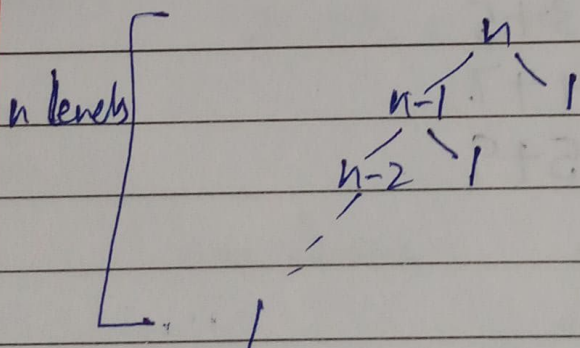 n
n levels n-1 1
n-2 1
1